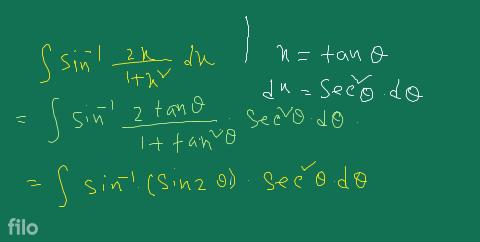 ∫ sin⁻¹ 2x/(1+x²) dx | x = tan θ
dx = sec²θ · dθ
= ∫ sin⁻¹ (2 tan θ)/(1 + tan²θ) · sec²θ · dθ ·
= ∫ sin⁻¹ (sin 2θ) · sec²θ · dθ
filo